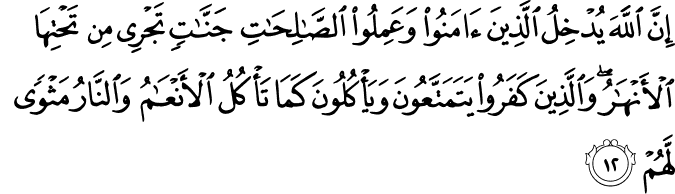 إِنَّ ٱللَّهَ يُدۡخِلُ ٱلَّذِينَ ءَامَنُواْ وَعَمِلُواْ ٱلصَّـٰلِحَـٰتِ جَنَّـٰتٍ تَجۡرِى مِن تَحۡتِهَا
ٱلۡأَنۡهَـٰرُ‌ۖ وَٱلَّذِينَ كَفَرُواْ يَتَمَتَّعُونَ وَيَأۡكُلُونَ كَمَا تَأۡكُلُ ٱلۡأَنۡعَـٰمُ وَٱلنَّارُ مَثۡوً۬ى
لَّهُمۡ ١٢